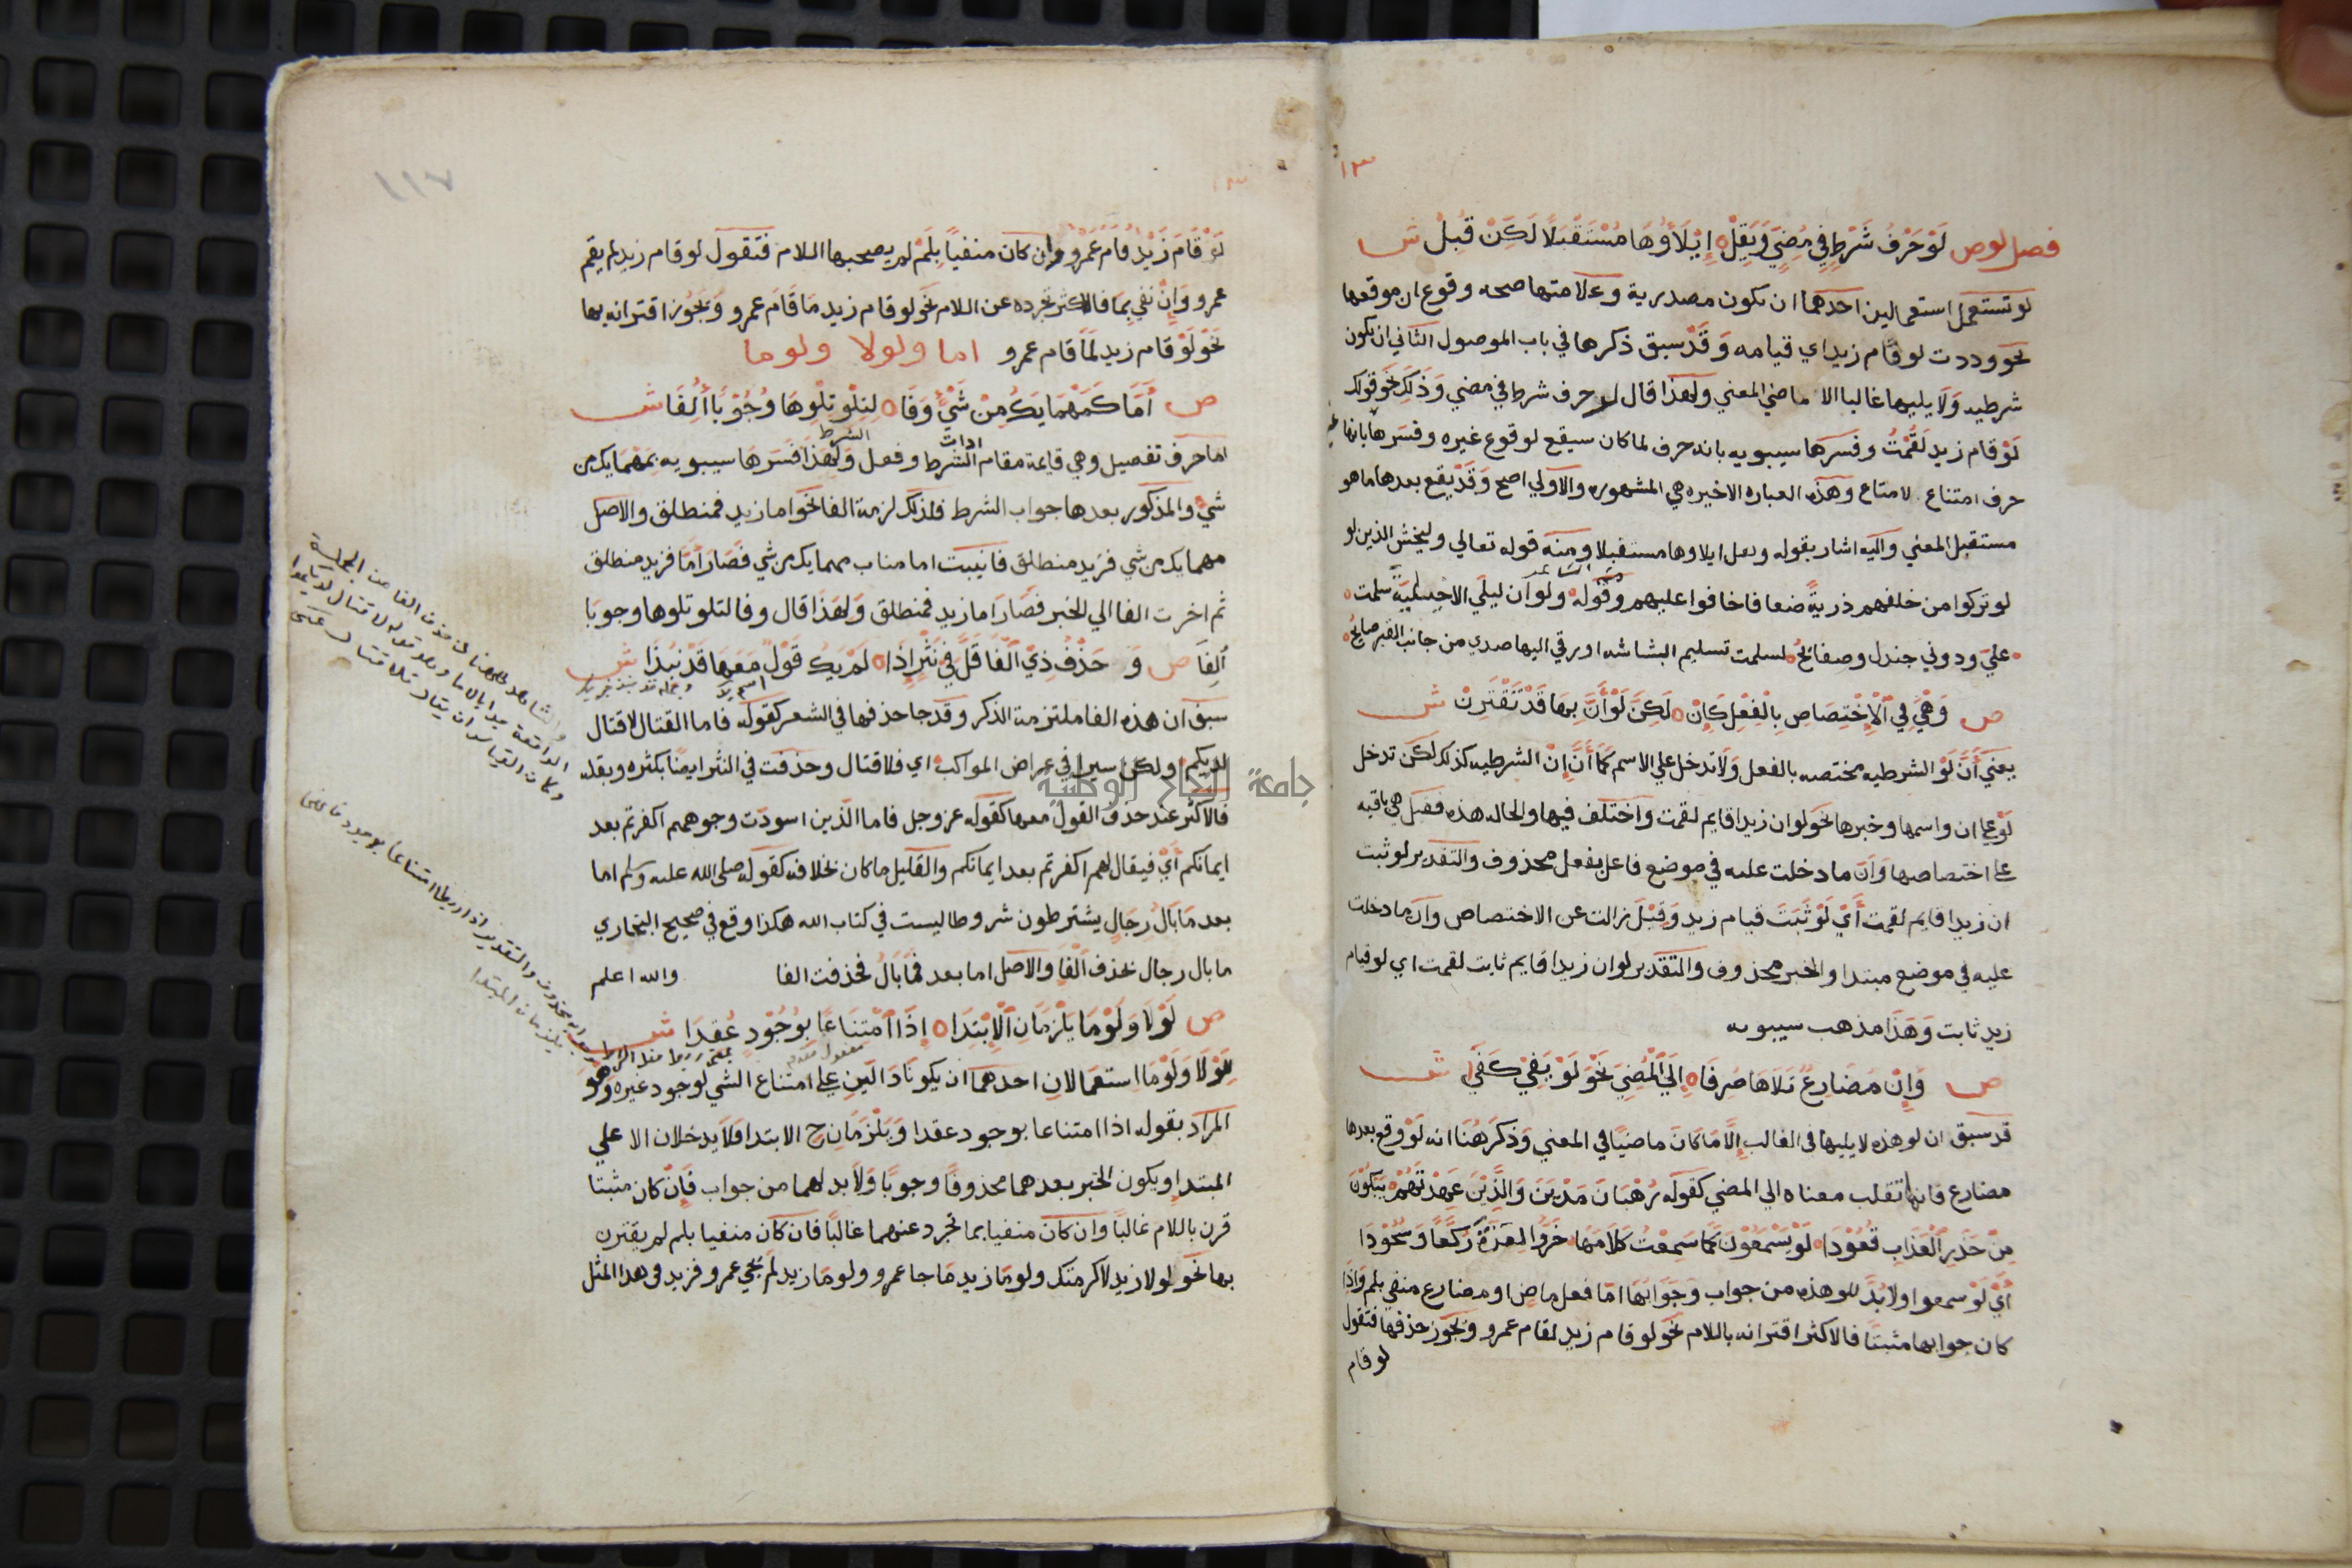 ١٣
فصل لو ص لَوْ حَرْفُ شَرْطٍ فِي مُضِيٍّ وَيَقِلْ إِيْلَاؤُهَا مُسْتَقْبَلًا لَكِنْ قُبِلْ ش
لو تستعمل استعمالين احدهما ان تكون مصدرية وعلامتها صحه وقوع ان موقعها
نحو وددت لو قام زيد اي قيامه وَقَدْ سبق ذكرها في باب الموصول الثاني ان تكون
شرطيه وَلَا يليها غالبا الا ماضي المعني ولهذا قال لو حرف شرط في مضي وَذَلِكَ نحو قولك
لَوْ قام زيد لَقُمْتُ وفسرها سيبويه بانه حرف لما كان سيقع لوقوع غيره وفسرها بانها
حرف امتناع لامتناع وهذه العباره الاخيره هي المشهوره والاولي اصح وَقَدْ يقع بعدها ما هو
مستقبل المعني وَاليه اشار بقوله ويقل ايلاوها مستقبلا ومنه قوله تعالي وليخش الذين لو
لو تركوا من خلفهم ذرية ضعافا خافوا عليهم وقوله ولو ان ليلي الاخيليية سلمت
علي ودوني جندل وصفائح لسلمت تسليم البشاشه او زقي اليها صدي من جانب القبر صايح
ص وَهْيَ فِي الْاِخْتِصَاصِ بِالْفِعْلِ كَإِنْ لَكِنَّ لَوْ أَنَّ بِهَا قَدْ تَقْتَرِنْ ش
يعني أَنَّ لَوْ الشرطيه مختصه بالفعل وَلَا تدخل علي الاسم كَمَا أَنَّ إِنْ الشرطيه كذلك لكن تدخل
لَوْ علي ان واسمها وخبرها نحو لو ان زيدا قايم لقمت واختلف فيها والحاله هذه فقيل هي باقيه
علي اختصاصها وَأَن ما دخلت عليه في موضع فاعل بفعل محذوف والتقدير لو ثبت
ان زيدا قايم لقمت أَيْ لَوْ ثَبَتَ قيام زيد وَقِيْلَ زالت عن الاختصاص وان ما دخلت
عليه في موضع مبتدا والخبر محذوف والتقدير لو ان زيدا قايم ثابت لقمت اي لو قيام
زيد ثابت وَهَذَا مذهب سيبويه
ص وَإِنْ مُضَارِعٌ تَلَاهَا صُرِفَا إِلَي الْمُضِيِّ نَحْوُ لَوْ يَفِيْ كَفَيْ ش
قد سبق ان لو هذه لا يليها في الغالب إِلَّا مَا كَانَ ماضيًا في المعني وَذَكَرَ هُنَا انه لَوْ وقع بعدها
مضارع فانها تقلب معناه الي المضي كقوله رُهْبَانَ مَدْيَنَ وَالَّذِيْنَ عَهِدْتُهُمْ يَبْكُوْنَ
مِنْ حَذَرِ الْعَذَابِ قُعُوْدَا لَوْ يَسْمَعُوْنَ كَمَا سَمِعْتُ كَلَامَهَا خَرُّوا لِعَزَّةَ رُكَّعًا وَسُجُوْدَا
أَيْ لَوْ سمعوا ولابُدَّ للو هذه من جواب وَجَوَابُهَا امّا فعل ماض او مضارع منفي بلم وَاذَا
كان جوابها مثبتًا فالاكثر اقترانه باللام نحو لو قام زيد لقام عمرو ويجوز حذفها فتقول
لو قام
١١٧
لَوْ قَامَ زَيْدٌ قَامَ عَمْرٌو وان كان منفياً بِلَمْ لم يصحبها اللام فتقول لو قام زيد لم يقم
عمرو وَإِنْ نفي بِمَا فالاكثر تجرده عن اللام نحو لو قام زيد مَا قَامَ عمرو وَيَجُوز اقترانه بها
نَحْوَ لَوْ قام زيد لَمَا قام عمرو اما ولولا ولوما
ص أَمَّا كَمَهْمَا يَكُ مِنْ شَيْءٍ وَفَا لِتِلْوِ تِلْوِهَا وُجُوْبًا أُلِفَا ش
اما حرف تفصيل وهي قايمة مقام ادات الشرط وفعل الشرط وَلِهَذَا فَسَّرَهَا سيبويه بِمَهْمَا يك من
شيء والمذكور بعدها جواب الشرط فلذلك لزمته الفا نحو اما زيد فمنطلق والاصل
مهما يك من شي فزيد منطلق فانيبت اما مناب مهما يك من شي فَصَارَ أَمَّا فزيد منطلق
ثم اخرت الفا الي الخبر فَصَارَ اما زيد فمنطلق وَلِهَذَا قال وفا لتلو تلوها وجوبًا
أُلِفَا ص وَ حَذْفُ ذِي الْفَا قَلَّ فِيْ نَثْرٍ إِذَا لَمْ يَكُ قَوْلٌ مَعَهَا قَدْ نُبِذَا ش
سبق ان هذه الفا ملتزمة الذكر وقد جا حذفها في الشعر كقوله فاما القتال لا قتال
لديكم ولكن سيرا في عراض المواكب اي فلا قتال وحذفت في النثر ايضًا بكثره وبقله
فالاكثر عند حذف القول معها كقوله عز وجل فاما الذين اسودت وجوههم اكفرتم بعد
ايمانكم أَيْ فيقال لهم اكفرتم بعد ايمانكم والقليل ما كان بخلافه كقوله صلي الله عليه وسلم اما
بعد مَا بَالُ رِجَالٍ يشترطون شروطا ليست في كتاب الله هكذا وقع في صحيح البخاري
ما بال رجال بحذف الفا والاصل اما بعد فَمَا بَالُ فحذفت الفا والله اعلم
ص لَوْلَا وَلَوْمَا يَلْزَمَانِ الْاِبْتِدَا إِذَا امْتِنَاعًا بِوُجُوْدٍ عُقِدَا ش
لِلَوْلَا وَلَوْمَا استعمالان احدهما ان يكونا دالين علي امتناع الشي لوجود غيره وَهُوَ
المراد بقوله اذا امتناعا بوجود عقدا وَيَلْزَمَانِ ح الابتدا فلا يدخلان الا علي
المبتدا ويكون الخبر بعدهما محذوفًا وجوبًا وَلَا بد لهما من جواب فَإِنْ كان مثبتا
قرن باللام غالبًا وان كان منفيا بما تجرد عنهما غالبًا فان كان منفيا بلم لم يقترن
بها نحو لولا زيد لاكرمتك ولوما زيد مَا جا عمرو ولومَا زيد لَمْ يجي عمرو فزيد في هذا المثل
جامعة النجاح الوطنية